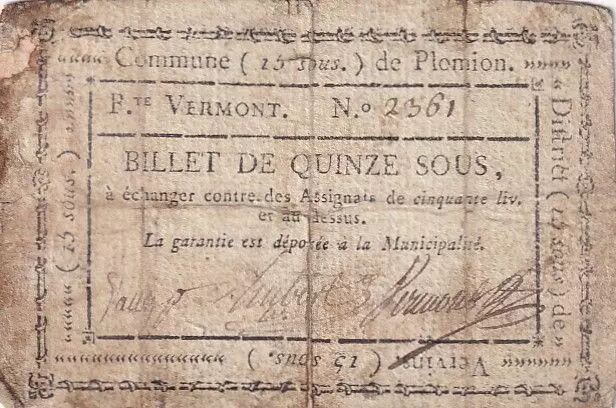 Commune ( 15 sous. ) de Plomion.
District ( 15 sous ) de
Vervins ( 15 sous. )
( 15 sous. )
F.TE VERMONT. N.o 2361
BILLET DE QUINZE SOUS,
à échanger contre des Assignats de cinquante liv.
et au-dessus.
La garantie est déposée à la Municipalité.